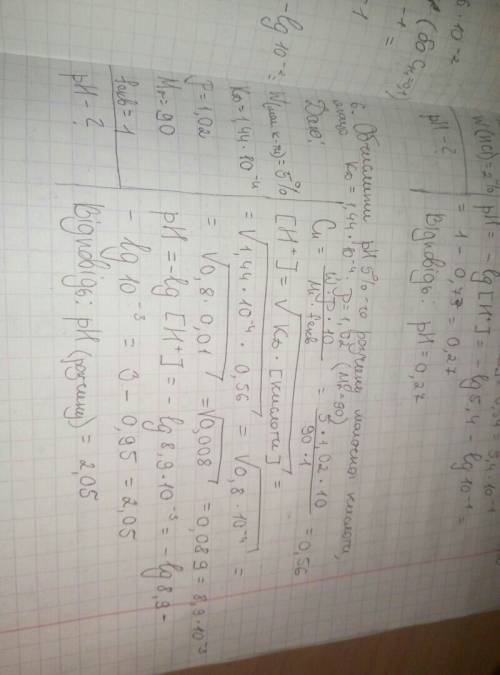 6 · 10⁻²
W(HCl)=2% pH = -lg[H⁺] = -lg 5,4 - lg 10⁻¹ =
= 1 - 0,73 = 0,27
pH - ?
Відповідь: pH = 0,27
6. Обчислити pH 5%-го розчину молочної кислоти,
якщо Kд = 1,44 · 10⁻⁴;
(Mr=90)
Дано:
W(мол к-ти) = 5%
Kд = 1,44 · 10⁻⁴
ρ = 1,02
Mr = 90
fекв = 1
pH - ?
Cн = W · ρ · 10 / Mr · fекв = 5 · 1,02 · 10 / 90 · 1 = 0,56
[H⁺] = √Kд · [кислоти] =
= √1,44 · 10⁻⁴ · 0,56 = √0,8 · 10⁻⁴ =
= √0,8 · 0,01 = √0,008 = 0,089 = 8,9 · 10⁻³
pH = -lg [H⁺] = -lg 8,9 · 10⁻³ = -lg 8,9 -
- lg 10⁻³ = 3 - 0,95 = 2,05
Відповідь: pH (розчину) = 2,05